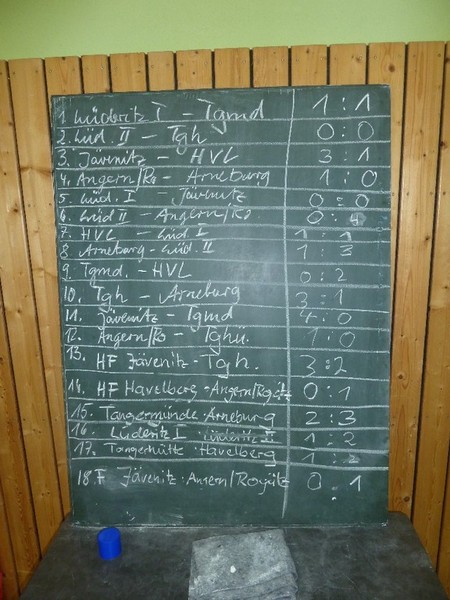 1. Lüderitz I – Tgmd 1 : 1
2. Lüd. II – Tgh 0 : 0
3. Jävenitz – HVL 3 : 1
4. Angern/Ro – Arneburg 1 : 0
5. Lüd. I – Jävenitz 0 : 0
6. Lüd II – Angern/Ro. 0 : 4
7. HVL – Lüd. I 1 : 1
8. Arneburg - Lüd. II 1 : 3
9. Tgmd. – HVL 0 : 2
10. Tgh – Arneburg 3 : 1
11. Jävenitz – Tgmd 4 : 0
12. Angern/Ro – Tghü. 1 : 0
13. HF Jävenitz - Tgh. 3 : 2
14. HF Havelberg - Angern/Rogätz 0 : 1
15. Tangermünde - Arneburg 2 : 3
16. Lüderitz I - Lüderitz II 1 : 2
17. Tangerhütte - Havelberg 1 : 2
18 F Jävenitz - Angern/Rogätz 0 : 1